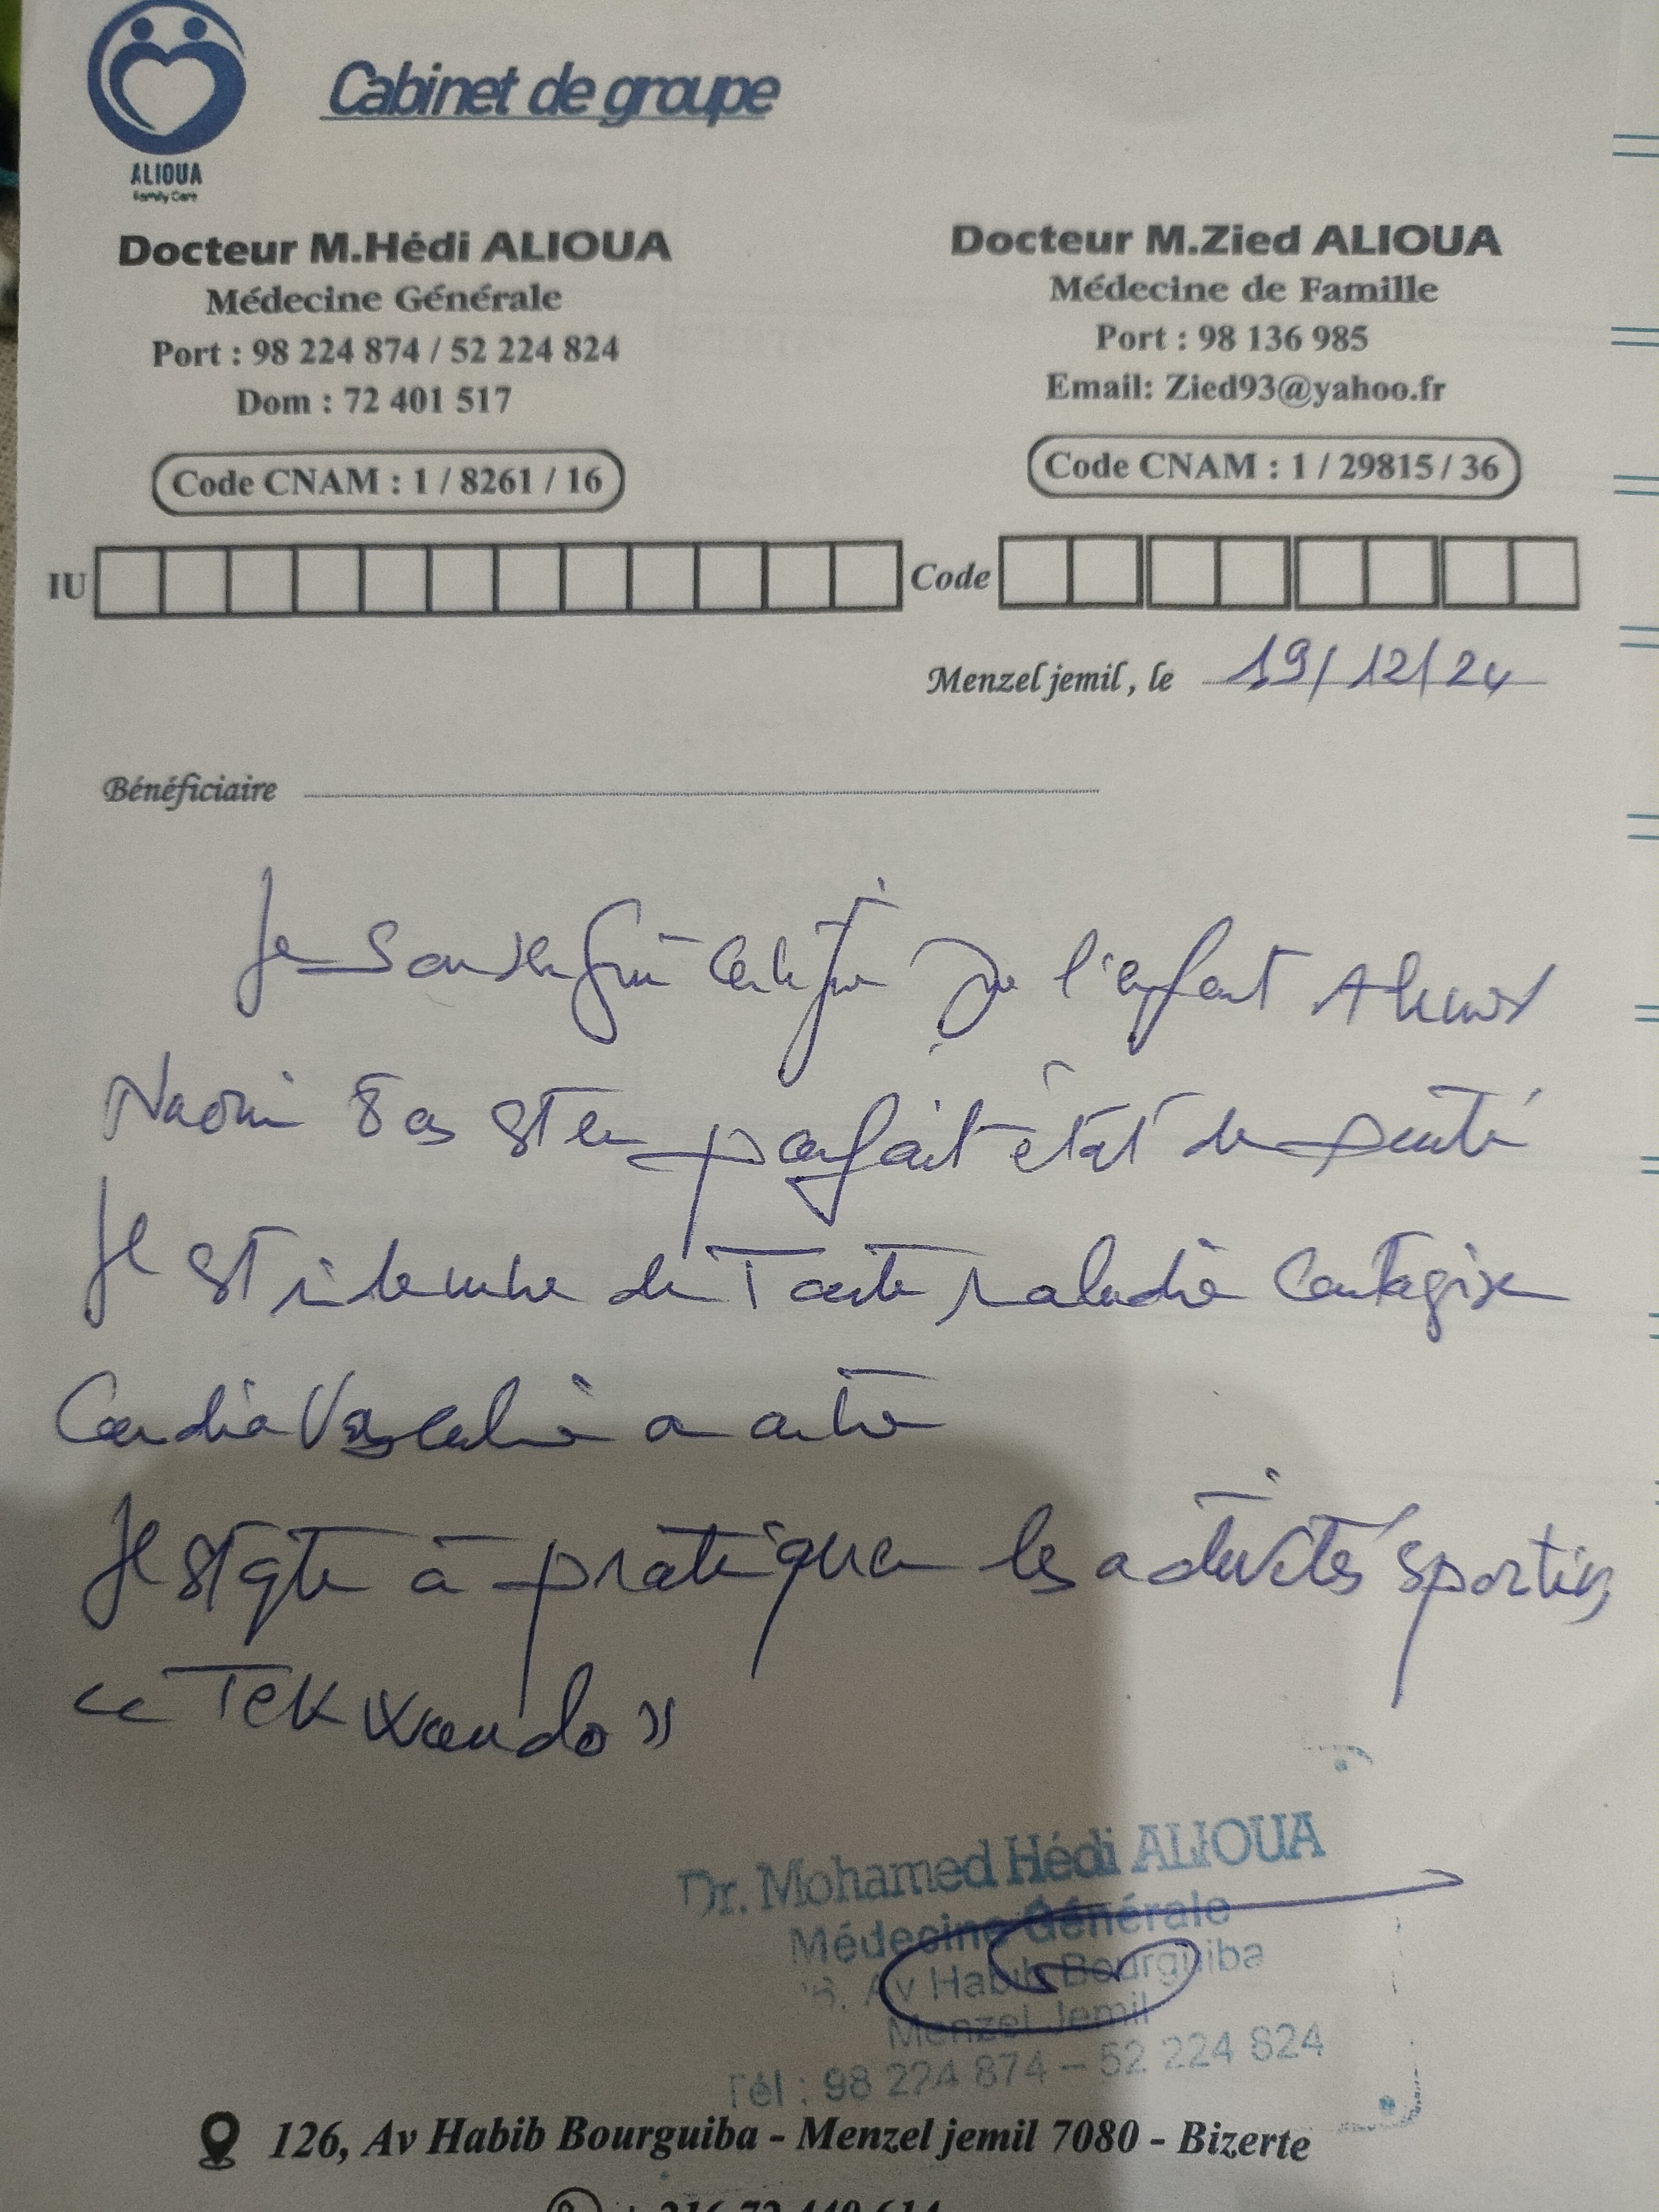 ALIOUA
Family Care
Cabinet de groupe
Docteur M.Hédi ALIOUA
Médecine Générale
Port : 98 224 874 / 52 224 824
Dom : 72 401 517
Code CNAM : 1 / 8261 / 16
Docteur M.Zied ALIOUA
Médecine de Famille
Port : 98 136 985
Email: Zied93@yahoo.fr
Code CNAM : 1 / 29815 / 36
IU
Code
Menzel jemil , le 19/12/24
Bénéficiaire
Je soussigné certifie que l'enfant
8 ans est en parfait état de santé
Il est indemne de toute maladie contagieuse
Cardio Vasculaire ou autre
Il est apte à pratiquer les activités sportives
« TeKwando »
Dr. Mohamed Hédi ALIOUA
Médecine Générale
Av Habib Bourguiba
Menzel Jemil
Tél : 98 224 874 – 52 224 824
126, Av Habib Bourguiba - Menzel jemil 7080 - Bizerte